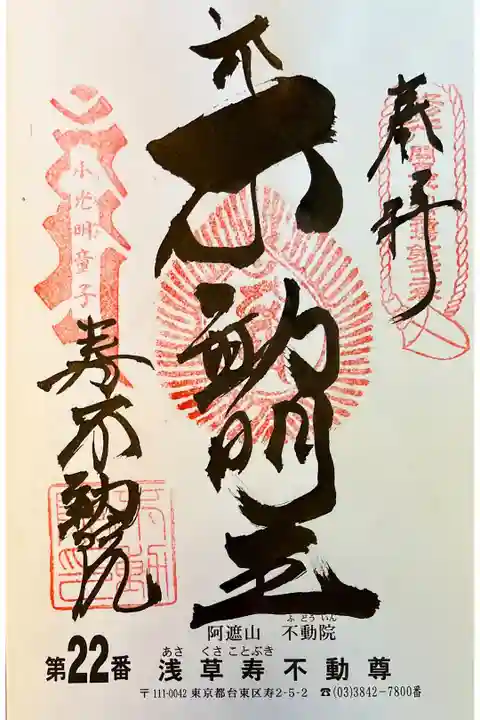 奉拝
不動明王
小光明童子
寿不動院
ふ どう いん
阿遮山 不動院
あさ くさ ことぶき
第22番 浅草寿不動尊
〒111-0042 東京都台東区寿2-5-2 ☎(03)3842-7800番